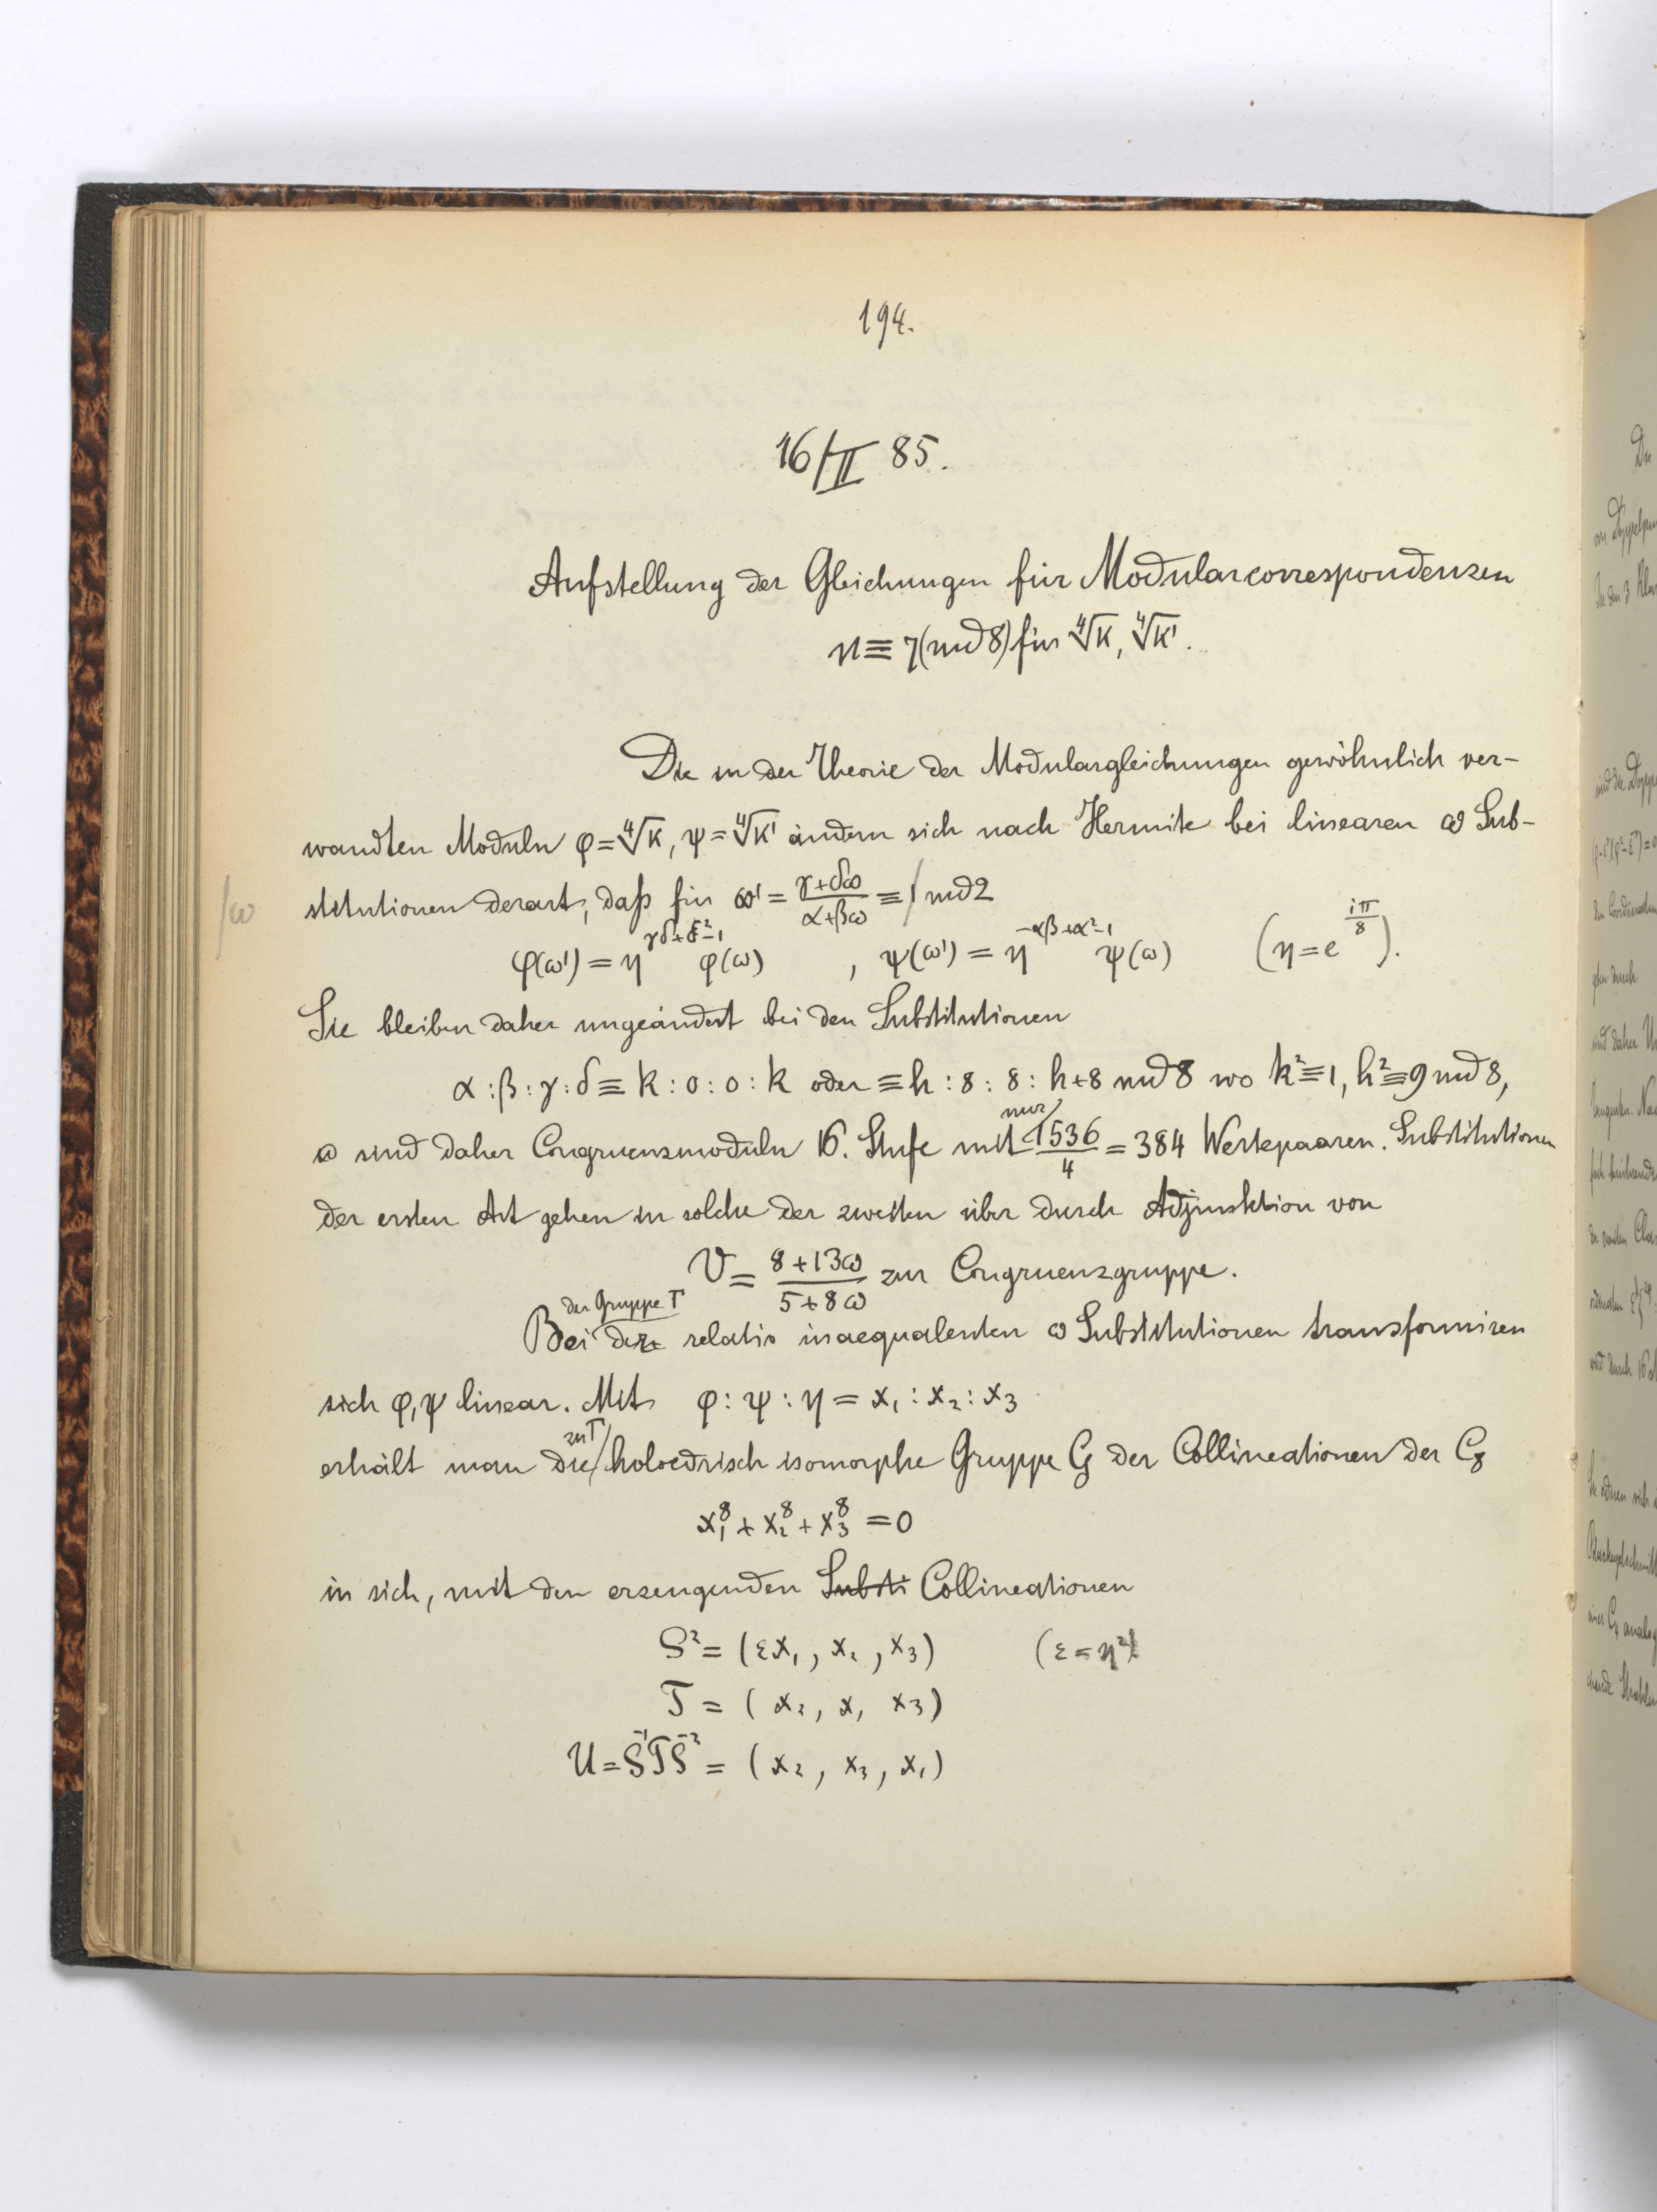 194.
16/II 85.
Aufstellung der Gleichungen für Modularcorrespondenzen
n ≡ 7 (md 8) für ∜k, ∜k'.
Die in der Theorie der Modulargleichungen gewöhnlich ver-
wandten Moduln φ = ∜k, ψ = ∜k' ändern sich nach Hermite bei linearen ω Sub-
/ω
stitutionen derart, daß für ω' = (γ+δω)/(α+βω) ≡ / md 2
φ(ω') = η^{γδ+δ²-1} φ(ω) , ψ(ω') = η^{-αβ+α²-1} ψ(ω) (η = e^{iπ/8}).
Sie bleiben daher ungeändert bei den Substitutionen
α : β : γ : δ ≡ k : 0 : 0 : k oder ≡ h : 8 : 8 : h+8 md 8 wo k² ≡ 1, h² ≡ 9 md 8,
ω sind daher Congruenzmoduln 16. Stufe mit nur 1536/4 = 384 Wertepaaren. Substitutionen
der ersten Art gehen in solche der zweiten über durch Adjunktion von
V = (8+13ω)/(5+8ω) zur Congruenzgruppe.
der Gruppe Γ
Bei der relativ inaequalenten ω Substitutionen transformiren
sich φ, ψ linear. Mit φ : ψ : η = x₁ : x₂ : x₃
erhält man die zu Γ holoedrisch isomorphe Gruppe G der Collineationen der C₈
x₁⁸ + x₂⁸ + x₃⁸ = 0
in sich, mit den erzeugenden Substi Collineationen
S² = (εx₁, x₂, x₃) (ε = η²)
T = (x₂, x₁ x₃)
U = S⁻¹TS⁻² = (x₂, x₃, x₁)